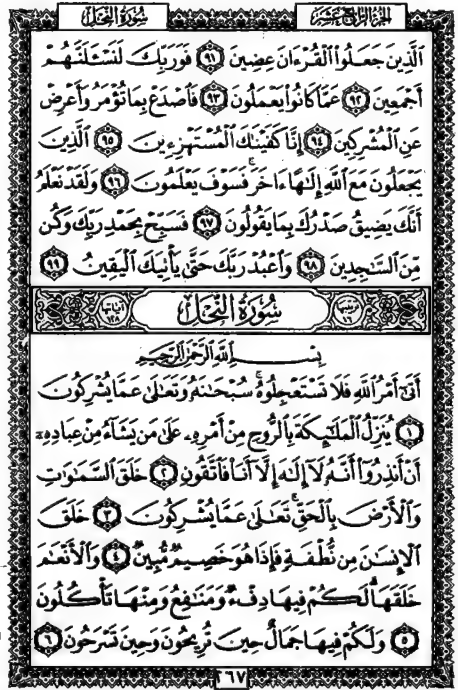 سُورَةُ النَّحْلِ
الجُزْءُ الرَّابِعَ عَشَر
الَّذِينَ جَعَلُوا الْقُرْءَانَ عِضِينَ ﴿٩١﴾ فَوَرَبِّكَ لَنَسْـَٔلَنَّهُمْ
أَجْمَعِينَ ﴿٩٢﴾ عَمَّا كَانُوا يَعْمَلُونَ ﴿٩٣﴾ فَاصْدَعْ بِمَا تُؤْمَرُ وَأَعْرِضْ
عَنِ الْمُشْرِكِينَ ﴿٩٤﴾ إِنَّا كَفَيْنَاكَ الْمُسْتَهْزِءِينَ ﴿٩٥﴾ الَّذِينَ
يَجْعَلُونَ مَعَ اللَّهِ إِلَٰهًا ءَاخَرَ ۚ فَسَوْفَ يَعْلَمُونَ ﴿٩٦﴾ وَلَقَدْ نَعْلَمُ
أَنَّكَ يَضِيقُ صَدْرُكَ بِمَا يَقُولُونَ ﴿٩٧﴾ فَسَبِّحْ بِحَمْدِ رَبِّكَ وَكُن
مِّنَ السَّاجِدِينَ ﴿٩٨﴾ وَاعْبُدْ رَبَّكَ حَتَّىٰ يَأْتِيَكَ الْيَقِينُ ﴿٩٩﴾
ترتيبها ١٦ سُورَةُ النَّحْلِ آياتها ١٢٨
بِسْمِ اللَّهِ الرَّحْمَٰنِ الرَّحِيمِ
أَتَىٰ أَمْرُ اللَّهِ فَلَا تَسْتَعْجِلُوهُ ۚ سُبْحَانَهُ وَتَعَالَىٰ عَمَّا يُشْرِكُونَ
﴿١﴾ يُنَزِّلُ الْمَلَٰئِكَةَ بِالرُّوحِ مِنْ أَمْرِهِ عَلَىٰ مَن يَشَاءُ مِنْ عِبَادِهِ
أَنْ أَنذِرُوا أَنَّهُ لَا إِلَٰهَ إِلَّا أَنَا فَاتَّقُونِ ﴿٢﴾ خَلَقَ السَّمَٰوَٰتِ
وَالْأَرْضَ بِالْحَقِّ ۚ تَعَالَىٰ عَمَّا يُشْرِكُونَ ﴿٣﴾ خَلَقَ
الْإِنسَٰنَ مِن نُّطْفَةٍ فَإِذَا هُوَ خَصِيمٌ مُّبِينٌ ﴿٤﴾ وَالْأَنْعَٰمَ
خَلَقَهَا ۗ لَكُمْ فِيهَا دِفْءٌ وَمَنَٰفِعُ وَمِنْهَا تَأْكُلُونَ
﴿٥﴾ وَلَكُمْ فِيهَا جَمَالٌ حِينَ تُرِيحُونَ وَحِينَ تَسْرَحُونَ ﴿٦﴾
٢٦٧